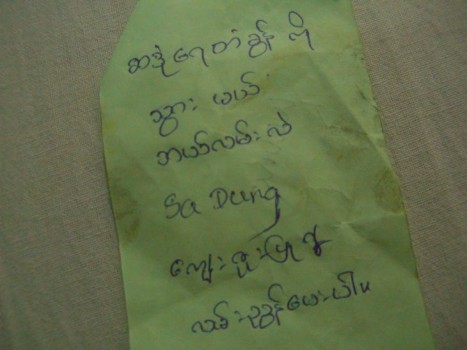 ဆဒုံရေတံခွန် ကို
သွား မယ်
ဘယ်လမ်းလဲ
Sa Dung
ကျေးဇူးပြု၍
လမ်းညွှန်ပေးပါ။